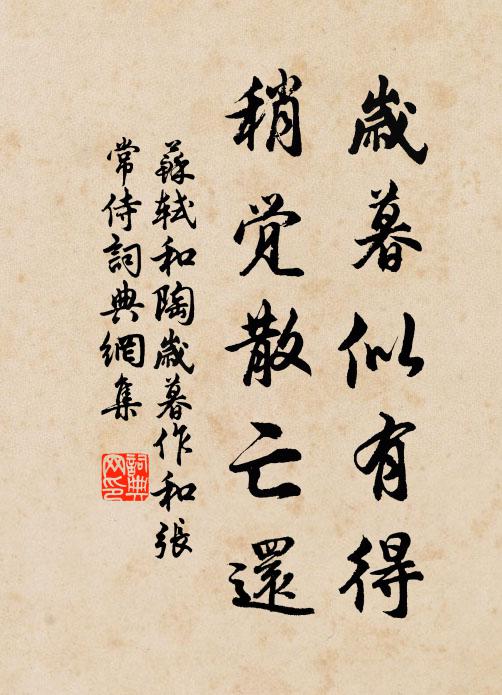 歲暮似有得
稍觉散亡還
蘇軾和陶歲暮作和張
常侍詞典網集
詞典
网印